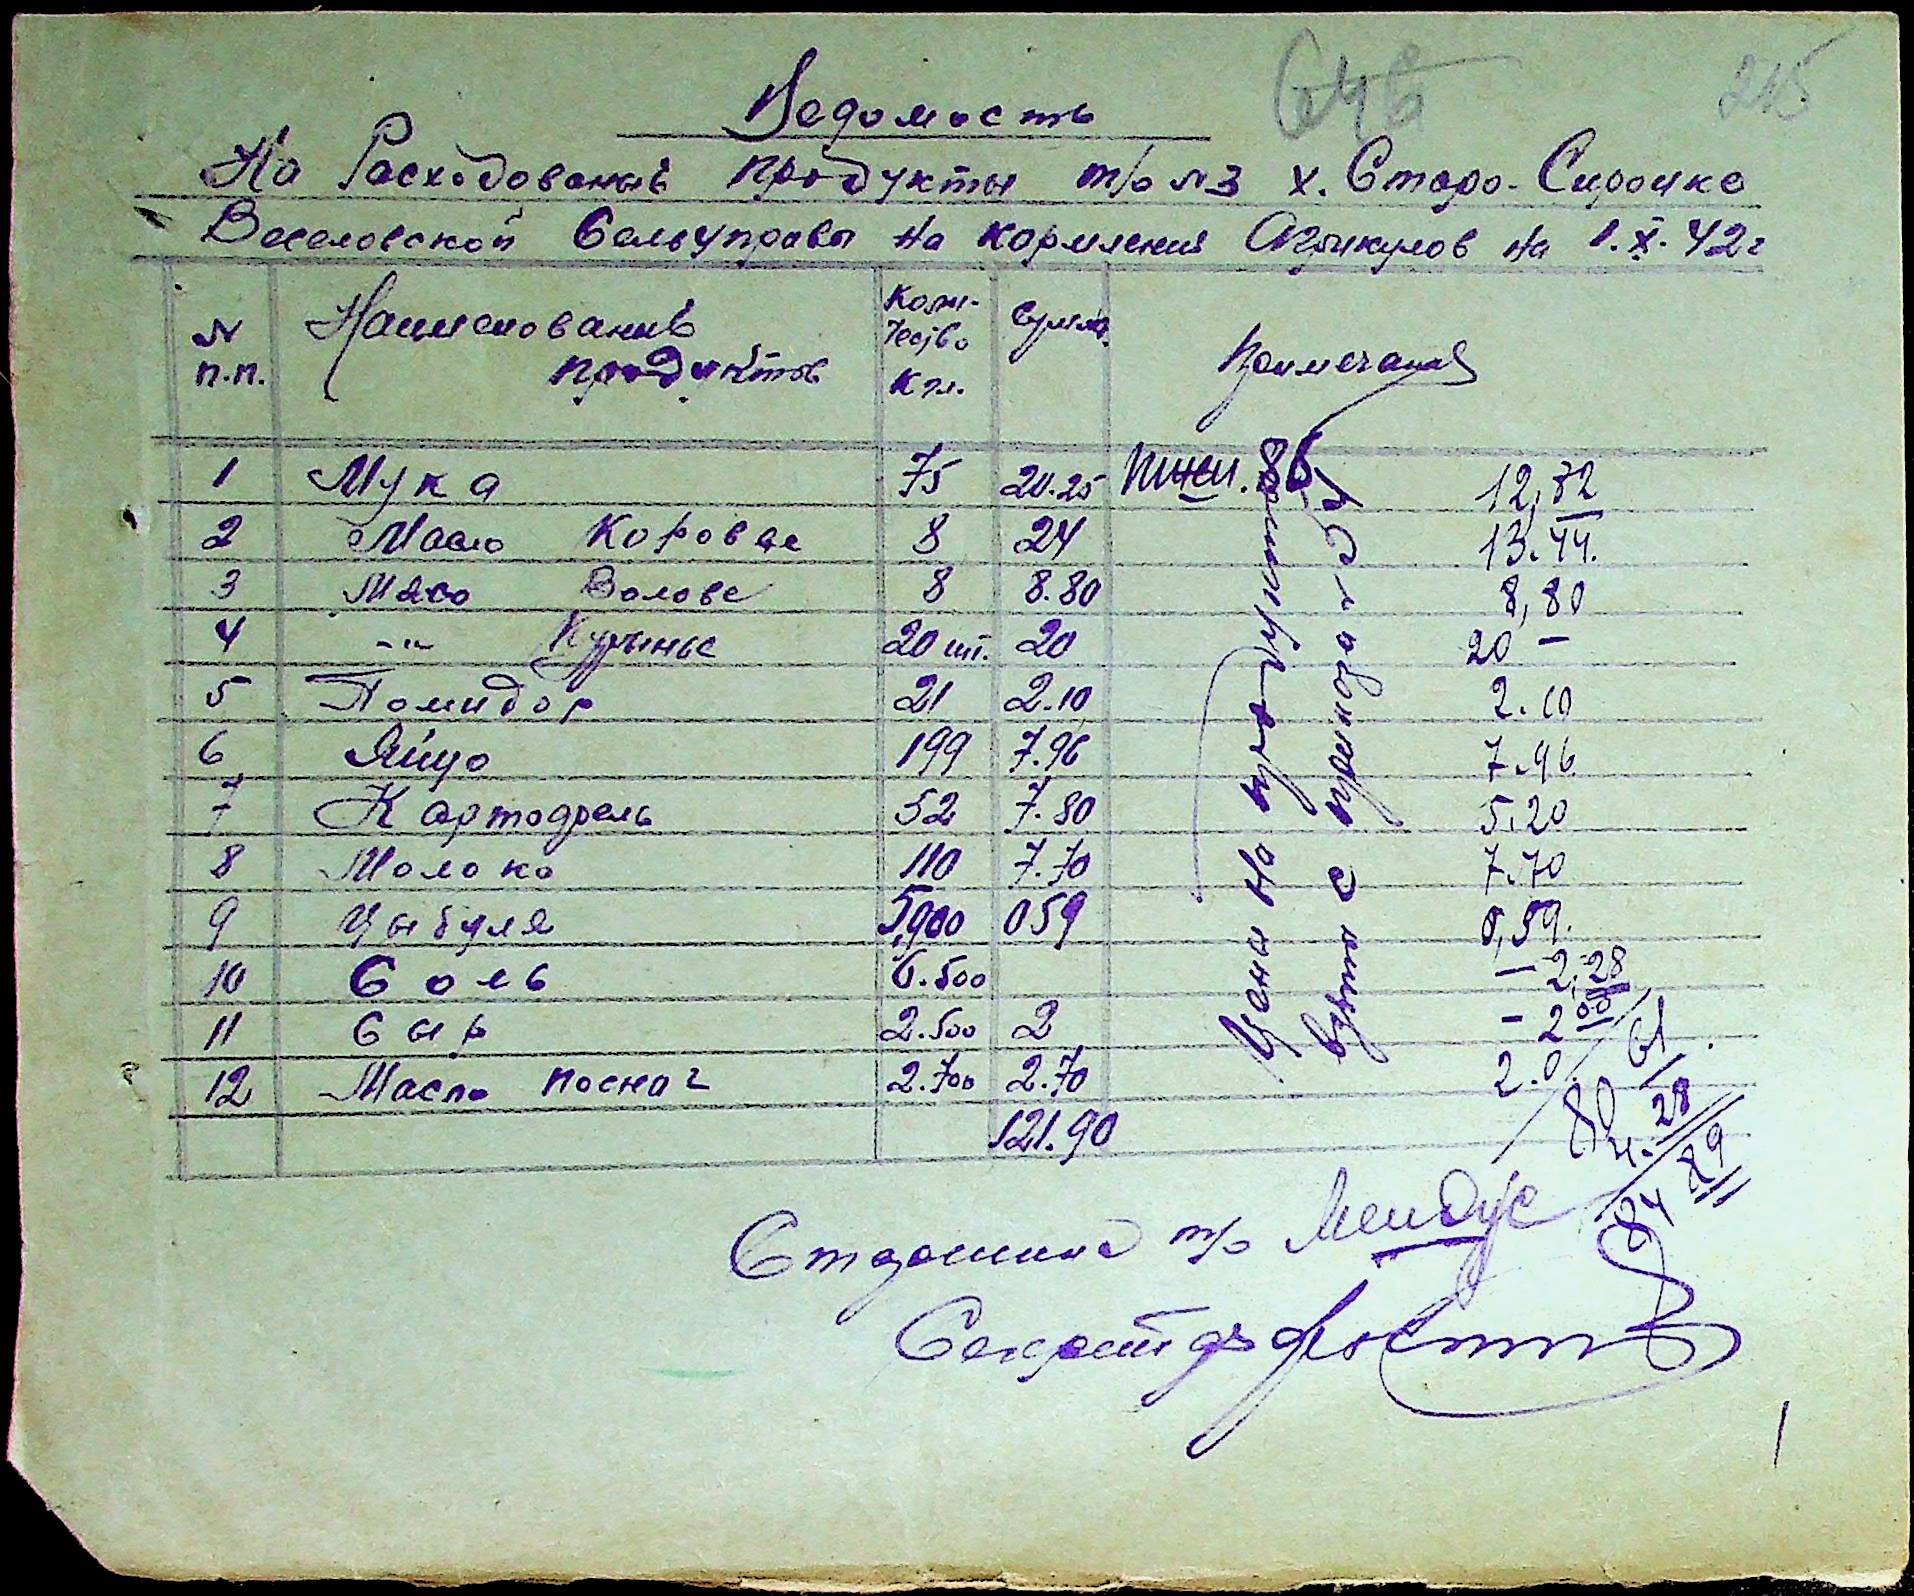 215
Ведомость
На Расходованые продукты т/о №3 х. Старо-Сироико
Веселовской Сельуправы на кормления на 1.X.42г
N п.п. Наименование продуктов Коли-чество кгл. Сумма Примечания
1 Мука 75 20.25 86 12,82
2 Масло Коровье 8 24 13.44.
3 Мясо Волове 8 8.80 8,80
4 -"- Курыные 20 шт. 20 20 –
5 Помидор 21 2.10 2.10
6 Яйцо 199 7.96 7.96
7 Картофель 52 7.80 5.20
8 Молоко 110 7.70 7.70
9 Цыбуля 5,900 059 0,59.
10 Соль 6.500 – 2,28
11 Сыр 2.500 2 – 2 00
12 Масло посног 2.700 2.70 2.0
121.90
Цены на продукты
взяты с
61
80 28
84 89
Старшина т/о
Секретарь